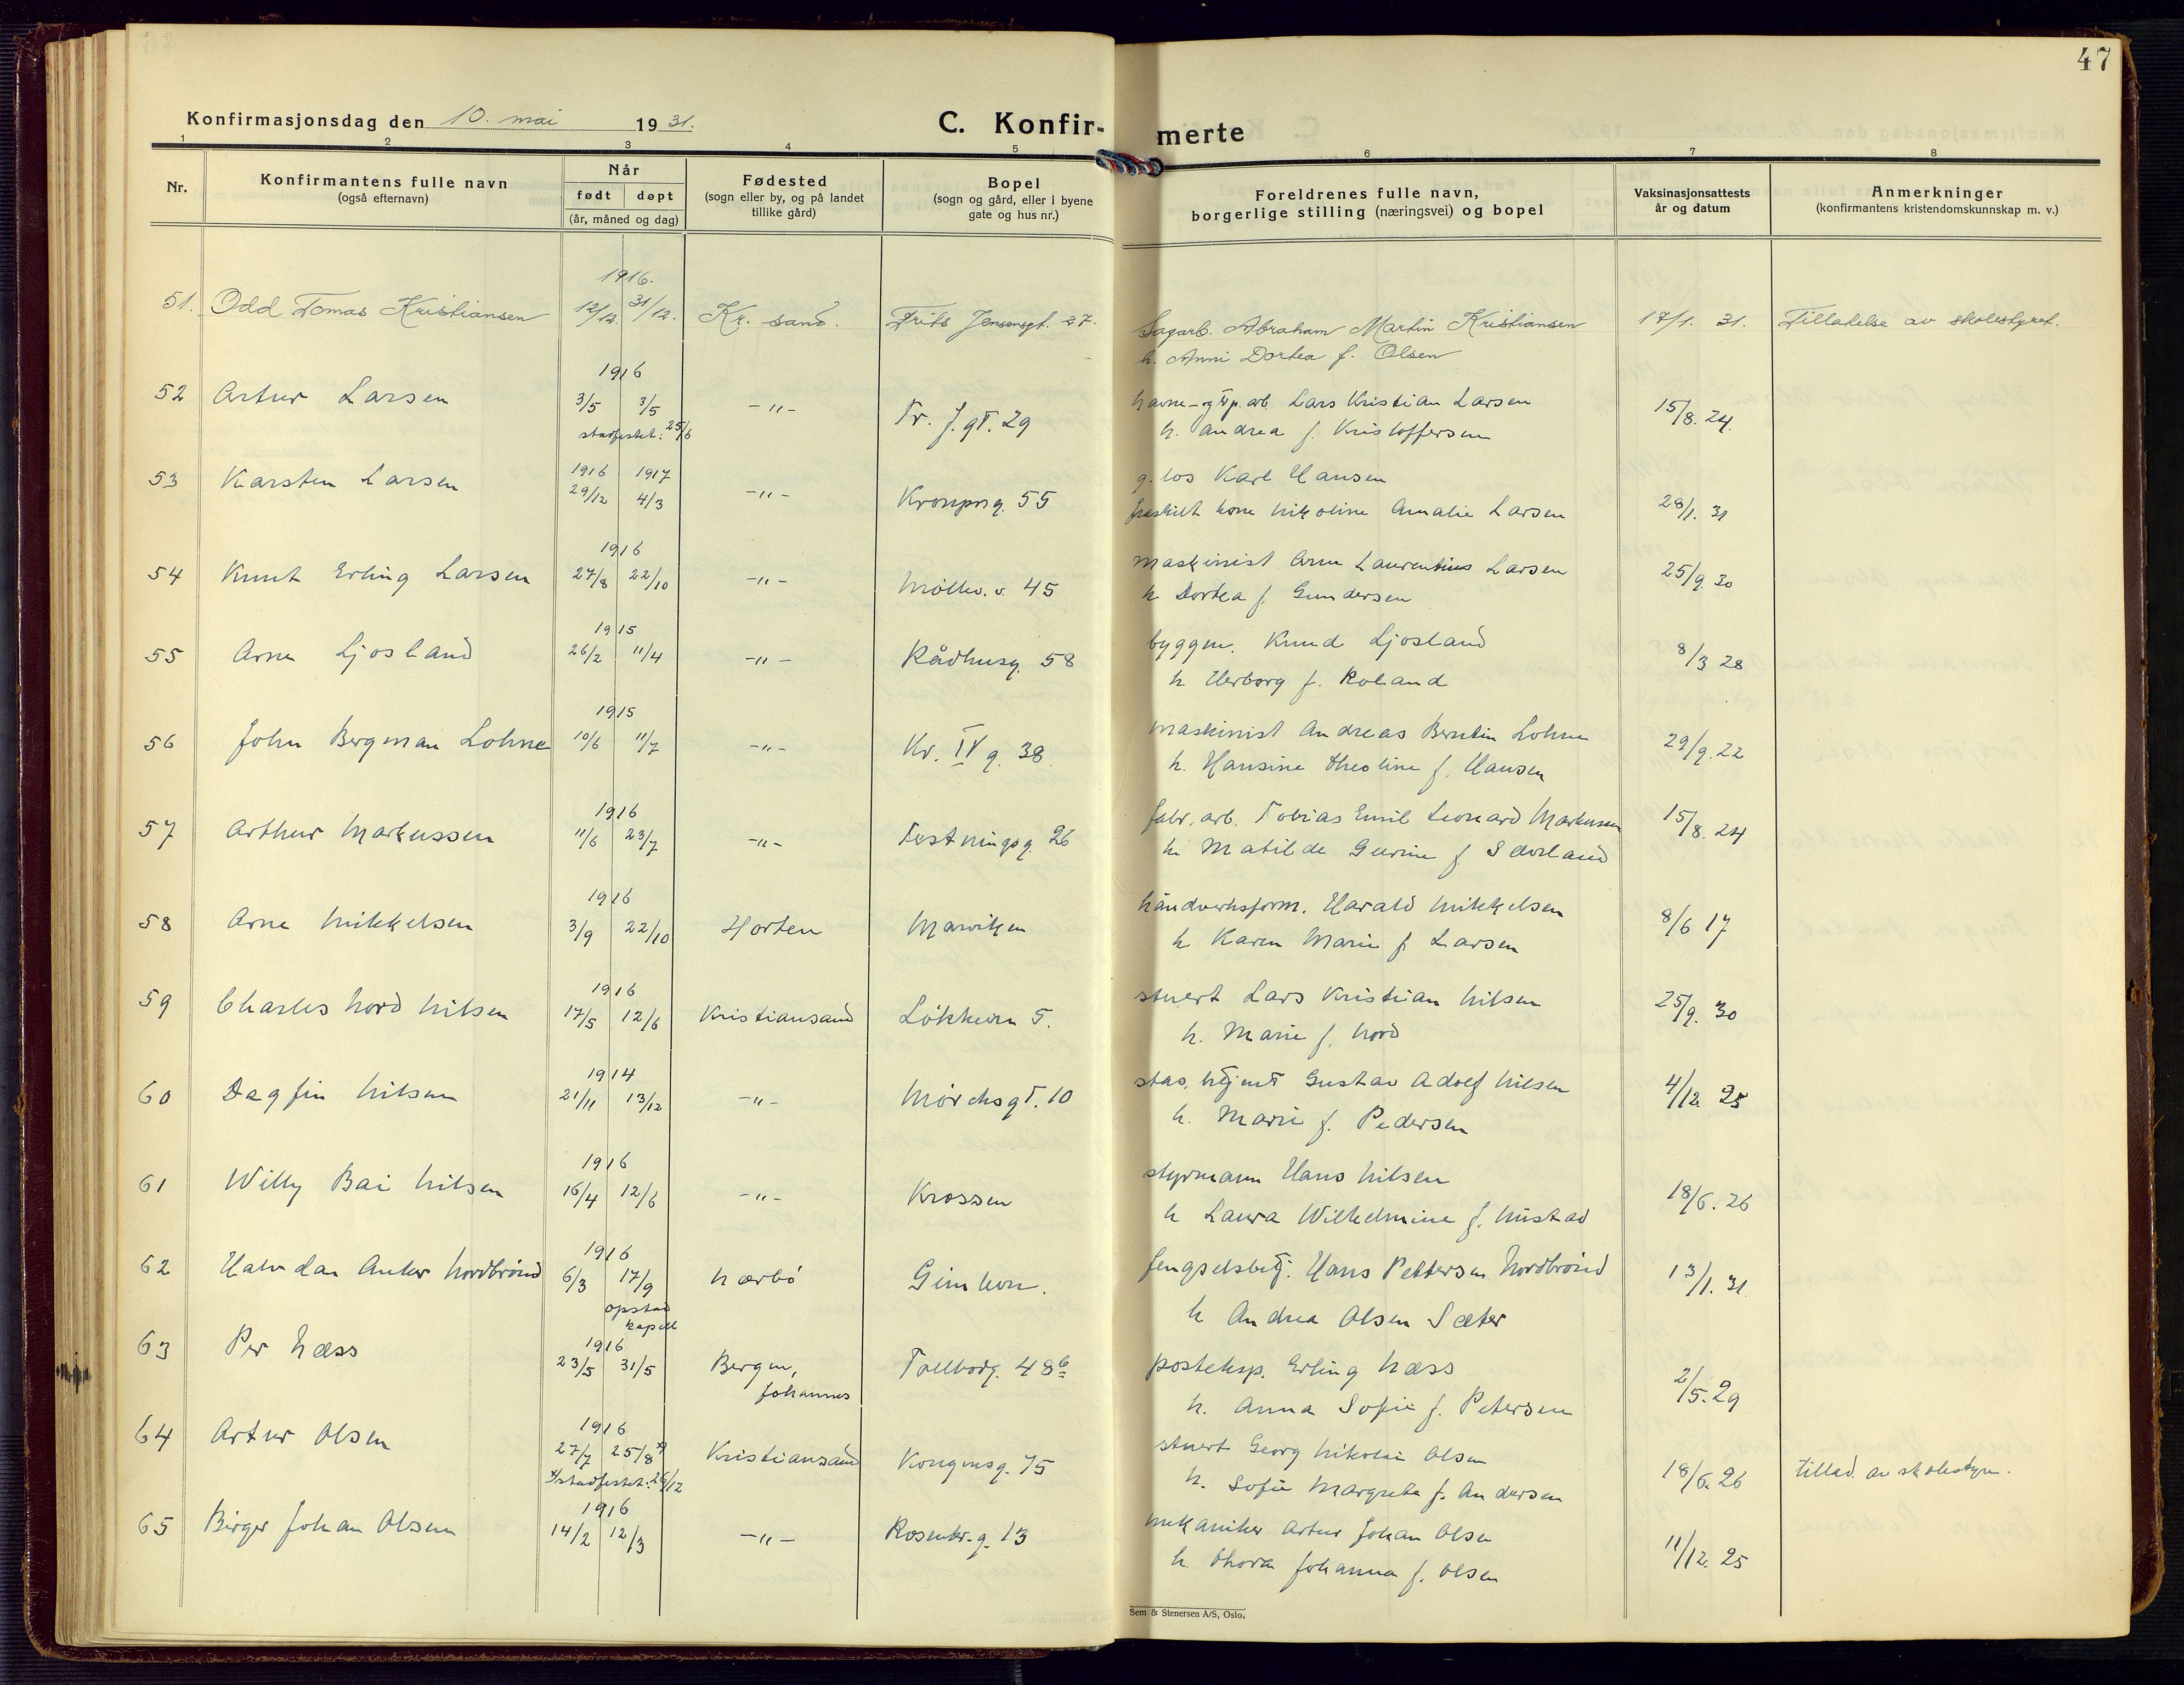 47
Konfirmasjonsdag den 10. mai 1931.
C. Konfir-
merte
1 2 3 4 5 6 7 8
Nr.
Konfirmantens fulle navn
(også efternavn)
Når
født døpt
(år, måned og dag)
Fødested
(sogn eller by, og på landet
tillike gård)
Bopel
(sogn og gård, eller i byene
gate og hus nr.)
Foreldrenes fulle navn,
borgerlige stilling (næringsvei) og bopel
Vaksinasjonsattests
år og datum
Anmerkninger
(konfirmantens kristendomskunnskap m. v.)
1916.
51. Odd Tomas Kristiansen 12/12. 31/12. Kr. sand. Frits Jensensgt. 27. Sagarb. Abraham Martin Kristiansen 17/1. 31. Tillatelse av skolestyret.
h. Anni Dortea f. Olsen
1916
52 Artur Larsen 3/5 3/5 -"- Tr. f. gt. 29 havne- og arb. Lars Kristian Larsen 15/8. 24.
stadfestet: 25/6 h. Andrea f. Kristoffersen
1916 1917
53 Karsten Larsen 29/12 4/3 -"- Kronprg. 55 g. los Karl Hansen 28/1. 31
fraskilt kone Nikoline Amalie Larsen
1916
54 Knut Erling Larsen 27/8 22/10 -"- Møllev. v. 45 maskinist Arne Laurentius Larsen 25/9. 30
h. Dortea f. Gundersen
1915
55 Arne Ljosland 26/2 11/4 -"- Rådhusg. 58 byggm. Knud Ljosland 8/3 28
h. Herborg f. Roland
1915
56 John Bergman Lohne 10/6 11/7 -"- Kr. IV g. 38 maskinist Andreas Berntin Lohne 29/9. 22
h. Hansine Theoline f. Hansen
1916
57 Arthur Markussen 11/6 23/7 -"- Festningsg. 26 fabr. arb. Tobias Emil Leonard Markussen 15/8. 24
h. Matilde Gurine f. Sørland
1916
58 Arne Mikkelsen 3/9 22/10 Horten Marviken håndverksform. Harald Mikkelsen 8/6 17
h Karen Marie f. Larsen
1916
59 Charles Nord Nilsen 17/5 12/6 Kristiansand Løkkevn 5. stuert Lars Kristian Nilsen 25/9. 30
h. Marie f. Nord
1914
60 Dagfin Nilsen 21/11 13/12 -"- Mørchsgt. 10 stas. betjent Gustav Adolf Nilsen 4/12 25
h. Marie f. Pedersen
1916
61 Willy Bai Nilsen 16/4 12/6 -"- Krossen styrmann Hans Nilsen 18/6. 26
h Laura Wilhelmine f. Mustad
1916
62 Halvdan Anker Nordbrønd 6/3 17/9 Nærbø Gimlevn. fengselsbetj. Hans Pettersen Nordbrønd 13/1. 31
opstad
kapell
h Andrea Olsen Sæter
1916
63 Per Næss 23/5 31/5 Bergen, Tollbodg. 48 b posteksp. Erling Næss 2/5. 29
Johannes h. Anna Sofie f. Petersen
1916
64 Artur Olsen 27/7 25/8 x) Kristiansand Kongensg. 75 stuert Georg Nikolai Olsen 18/6. 26 tillad. av skolestyre.
x) stadfestet: 26/12 h. Sofie Margrete f. Andersen
1916
65 Birger Johan Olsen 14/2 12/3 -"- Rosenkr. g. 13 mekaniker Artur Johan Olsen 11/12. 25
h. Thora Johanna f. Olsen
Sem & Stenersen A/S, Oslo.